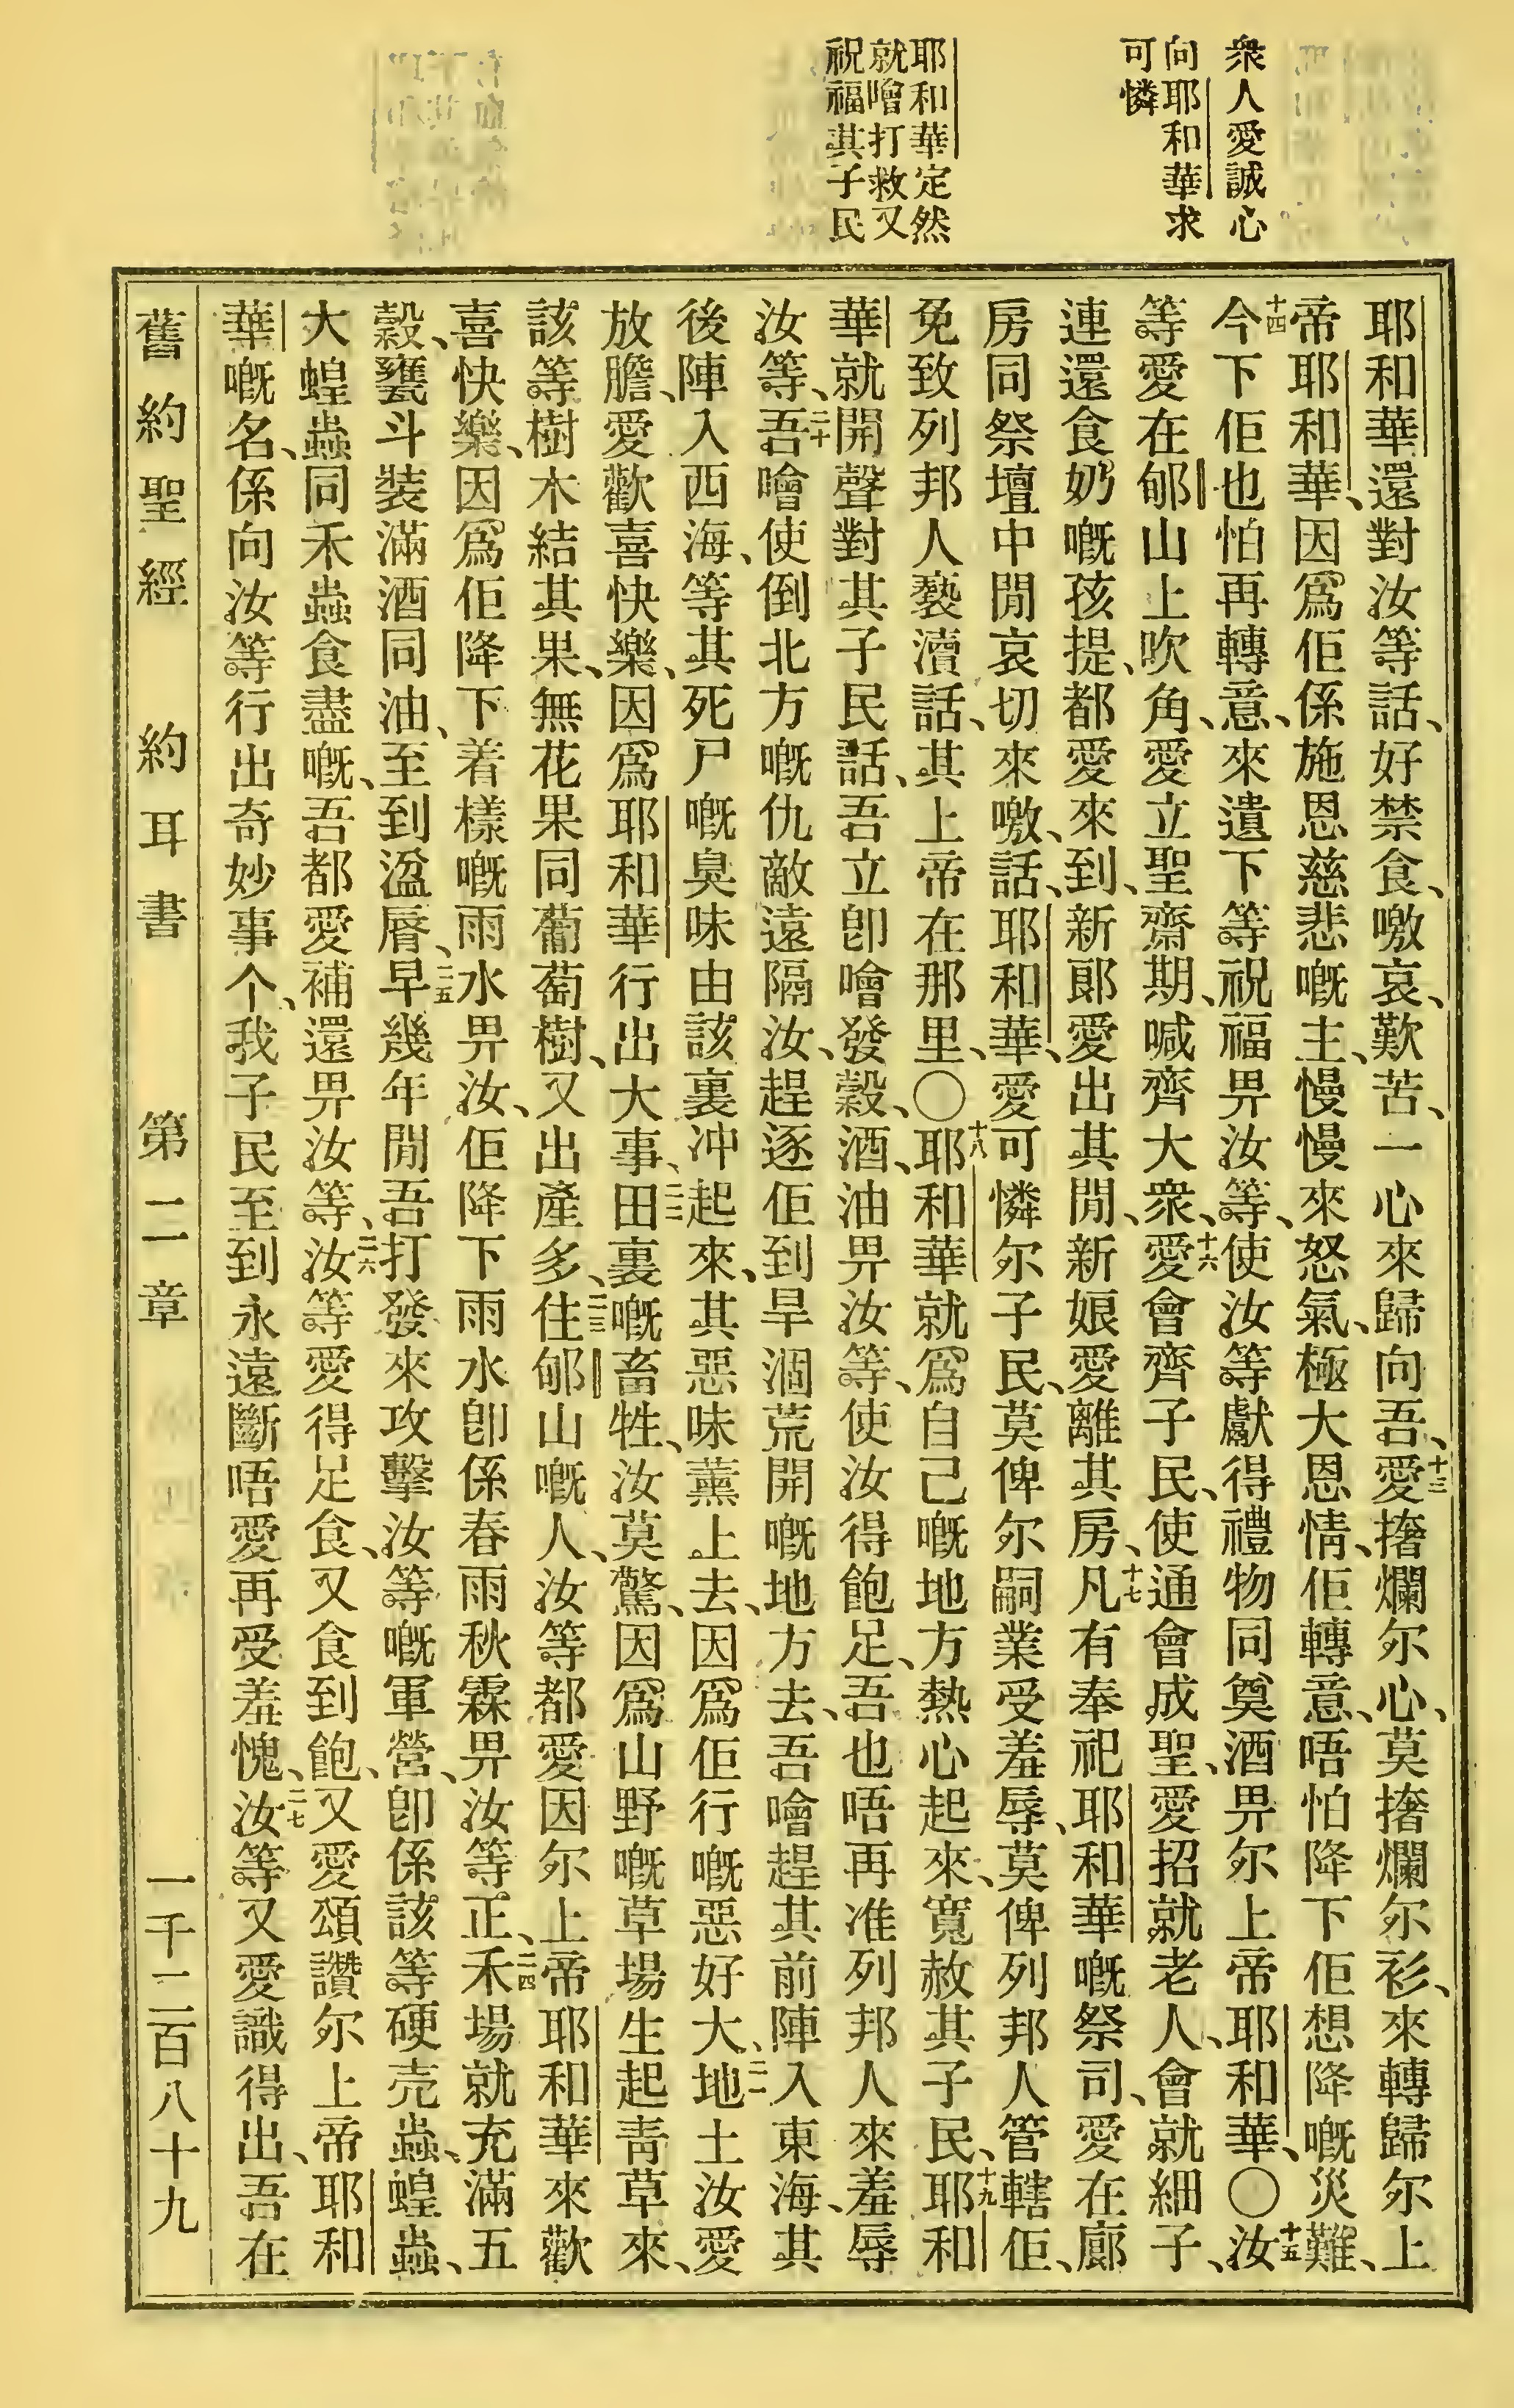 衆人愛誠心
向耶和華求
可憐
耶和華定然
就噲打救又
祝福其子民
耶和華還對汝等話、好禁食、噭哀、歎苦、一心來歸向吾、十三愛撦爛尔心、莫撦爛尔衫、來轉歸尔上
帝耶和華、因爲佢係施恩慈悲嘅主、慢慢來怒氣、極大恩情、佢轉意、唔怕降下佢想降嘅災難、
十四今下佢也怕再轉意、來遺下等祝福畀汝等、使汝等獻得禮物同奠酒畀尔上帝耶和華、〇十五汝
等愛在郇山上吹角、愛立聖齋期、喊齊大衆、十六愛會齊子民、使通會成聖、愛招就老人、會就細子、
連還食奶嘅孩提、都愛來到、新郎愛出其間、新娘愛離其房、十七凡有奉祀耶和華嘅祭司、愛在廊
房同祭壇中間哀切來噭、話、耶和華、愛可憐尔子民、莫俾尔嗣業受羞辱、莫俾列邦人管轄佢、
免致列邦人褻瀆話、其上帝在那里、〇十八耶和華就爲自己嘅地方熱心起來、寬赦其子民、十九耶和
華就開聲對其子民話、吾立卽噲發穀、酒、油畀汝等、使汝得飽足、吾也唔再准列邦人來羞辱
汝等、二十吾噲使倒北方嘅仇敵遠隔汝、趕逐佢到旱涸荒開嘅地方去、吾噲趕其前陣入東海、其
後陣入西海、等其死尸嘅臭味由該裏冲起來、其惡味薰上去、因爲佢行嘅惡好大、二一地土汝愛
放膽、愛歡喜快樂、因爲耶和華行出大事、二二田裏嘅畜牲、汝莫驚、因爲山野嘅草場生起靑草來、
該等樹木結其果、無花果同葡萄樹、又出產多、二三住郇山嘅人、汝等都愛因尔上帝耶和華來歡
喜快樂、因爲佢降下着樣嘅雨水畀汝、佢降下雨水卽係春雨秋霖畀汝等正、二四禾場就充滿五
穀、甕斗裝滿酒同油、至到溢脣、二五早幾年間吾打發來攻擊汝等嘅軍營、卽係該等硬壳蟲、蝗蟲、
大蝗蟲同禾蟲食盡嘅、吾都愛補還畀汝等、二六汝等愛得足食、又食到飽、又愛頌讚尔上帝耶和
華嘅名、係向汝等行出奇妙事个、我子民至到永遠斷唔愛再受羞愧、二七汝等又愛識得出、吾在
舊約聖經　約耳書　第二章　一千二百八十九